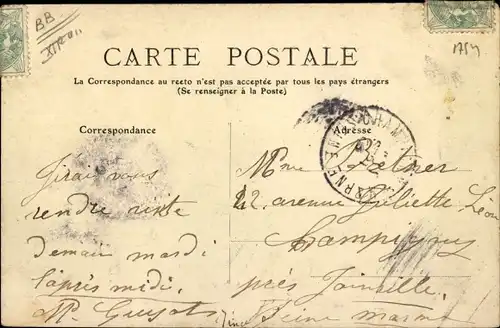 BB
1754
CARTE POSTALE
La Correspondance au recto n'est pas acceptée par tous les pays étrangers
(Se renseigner à la Poste)
Correspondance
Adresse
J'irai vous
rendre visite
demain mardi
l'après midi.
Mme
22, avenue Juliette
Champigny
près Joinville
Seine Marne